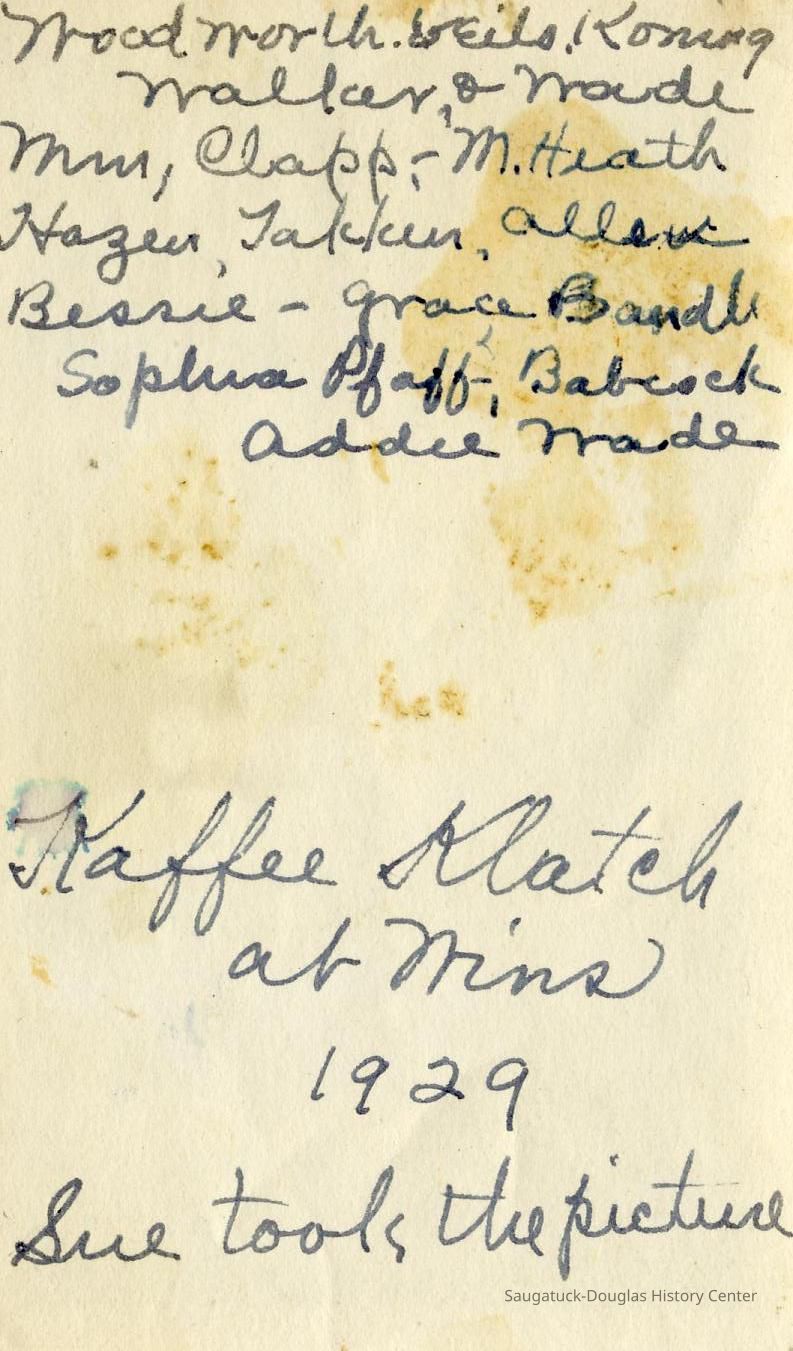 Woodworth. Weils. Koning
Walker, & Wade
Min, Clapp, - M. Heath
Hazen, Takken, Allen
Bessie - Grace Bandle
Sophia Pfaff, Babcock
Addie Wade
Kaffee Klatch
at Mins
1929
Sue took the picture
Saugatuck-Douglas History Center